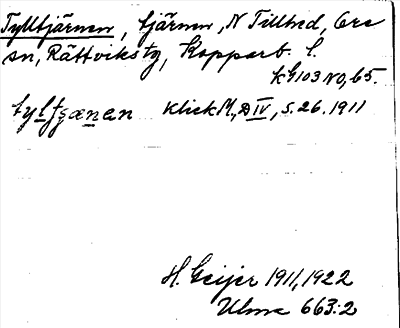 Tylltjärnen, tjärnen, N Tillhed, Ore
sn, Rättviks tg, Kopparb. l.
kG103 NO, 65.
tyltʃænen Klick M., D IV, S. 26. 1911
H. Geijer 1911, 1922
Ulma 663:2